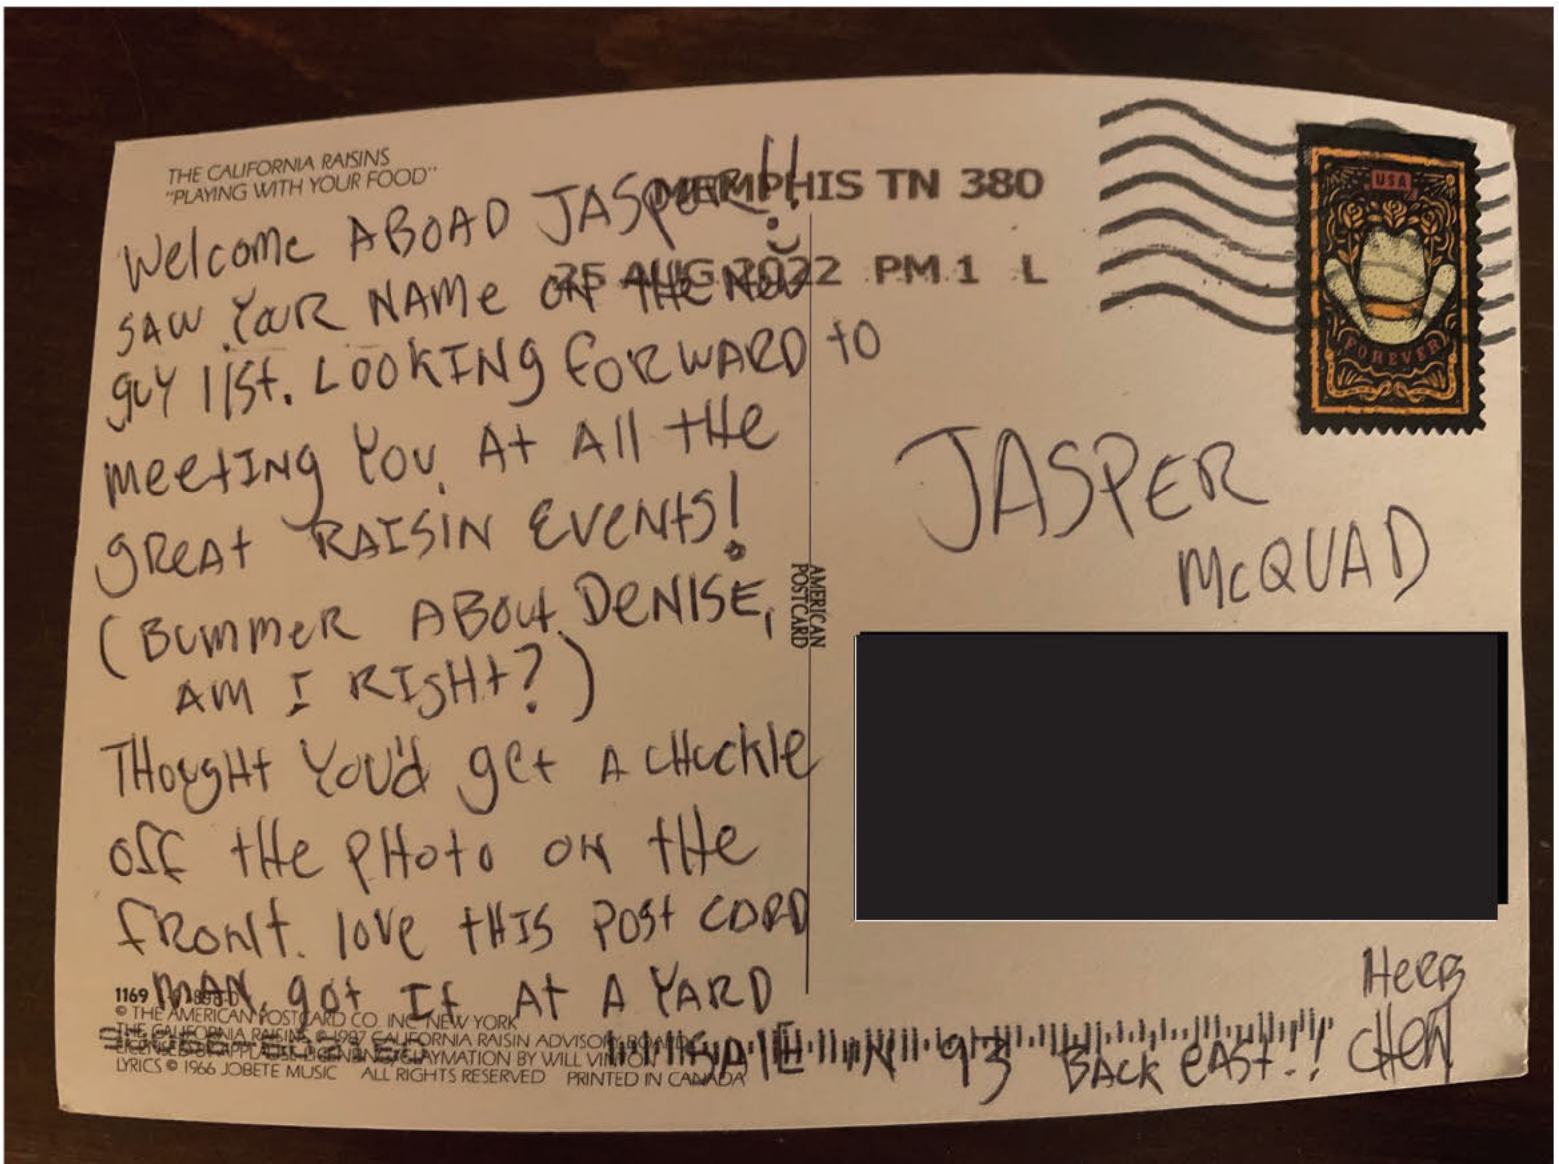 THE CALIFORNIA RAISINS
"PLAYING WITH YOUR FOOD"
Welcome ABOAD JASPER!!
SAW YOUR NAME ON THE NEW
guy list. LOOKING FORWARD to
meetING You At All tHe
gReat RAISIN EVENtS!
(BUMMER ABOUt DENISE,
AM I RIgHt?)
THougHt You'd get A CHuckle
off tHe PHoto on tHe
fRont. love tHIS Post CARD
MAN, got It At A YARD
SAlE IN '93 BACK EASt!!
HERB
CHEW
MEMPHIS TN 380
25 AUG 2022 PM 1 L
USA
FOREVER
JASPER
McQUAD
AMERICAN
POSTCARD
1169
© THE AMERICAN POSTCARD CO. INC NEW YORK
THE CALIFORNIA RAISINS © 1987 CALIFORNIA RAISIN ADVISORY BOARD
LICENSED BY APPLAUSE LICENSING CLAYMATION BY WILL VINTON
LYRICS © 1966 JOBETE MUSIC ALL RIGHTS RESERVED PRINTED IN CANADA